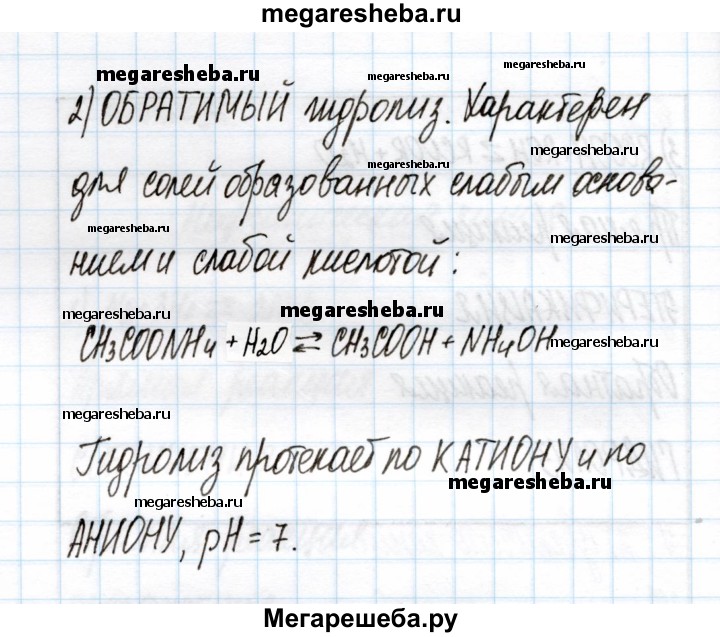 megaresheba.ru
megaresheba.ru megaresheba.ru
2) ОБРАТИМЫЙ гидролиз. Характерен
megaresheba.ru
для солей образованных слабым основа-
megaresheba.ru megaresheba.ru
нием и слабой кислотой:
megaresheba.ru
CH3COONH4 + H2O ⇄ CH3COOH + NH4OH
megaresheba.ru
megaresheba.ru
Гидролиз протекает по КАТИОНУ и по
megaresheba.ru
megaresheba.ru
АНИОНУ, pH = 7.
Мегарешеба.ру